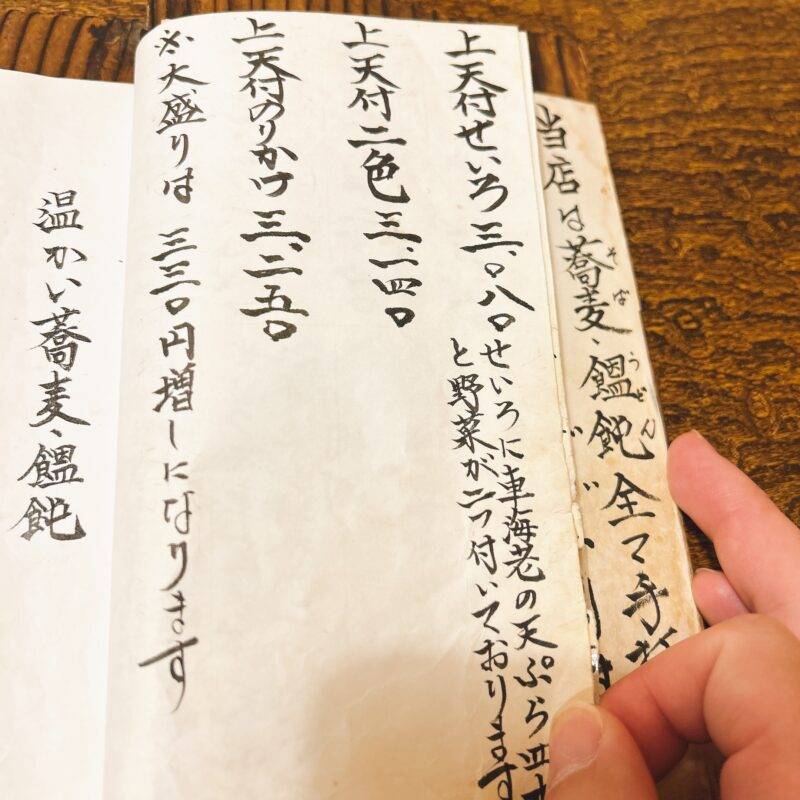 当店は蕎麦、饂飩全て手
そば
うどん
上天付せいろ三、〇八〇
せいろに車海老の天ぷら
と野菜が二つ付いております
上天付二色三、一四〇
上天付のりかけ三、二五〇
※大盛りは三三〇円増しになります
温かい蕎麦、饂飩